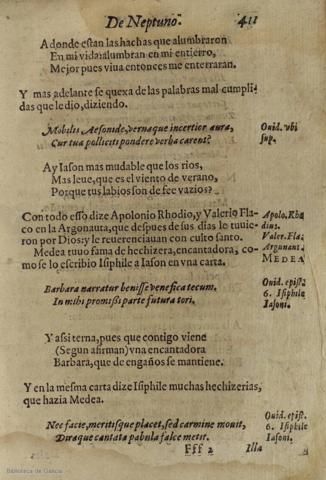 De Neptuno. 411
A donde estan las hachas que alumbraron
En mi vida? alumbran en mi entierro,
Mejor pues viua entonces me enterraran.
Y mas adelante se quexa de las palabras mal cumpli-
das que le dio, diziendo.
Mobilis Aesonide, vernaque incertior aura, Ouid. vbi
Cur tua polliciti pondere verba carent? sup.
Ay Iason mas mudable que los rios,
Mas leue, que es el viento de verano,
Porque tus labios son de fee vazios?
Con todo esso dize Apolonio Rhodio, y Valerio Fla- Apolo. Rho
co en la Argonauta, que despues de sus dias le tuuie- dius.
ron por Dios; y le reuerenciauan con culto santo. Valer. Fla.
Medea tuuo fama de hechizera, encantadora, co- Argonaut.
mo se lo escribio Isiphile a Iason en vna carta. MEDEA
Barbara narratur benisse venefica tecum. Ouid. epist.
In mihi promissi parte futura tori. 6. Isiphile
Iasoni.
Y assi terna, pues que contigo viene
(Segun afirman) vna encantadora
Barbara, que de engaños se mantiene.
Y en la mesma carta dize Isiphile muchas hechizerias,
que hazia Medea.
Nec facie, meritisque placet, sed carmine mouit, Ouid. epist.
Diraque cantata pabula falce metit. 6. Isiphile
Iasoni.
Fff 2 Illa
Biblioteca de Galicia